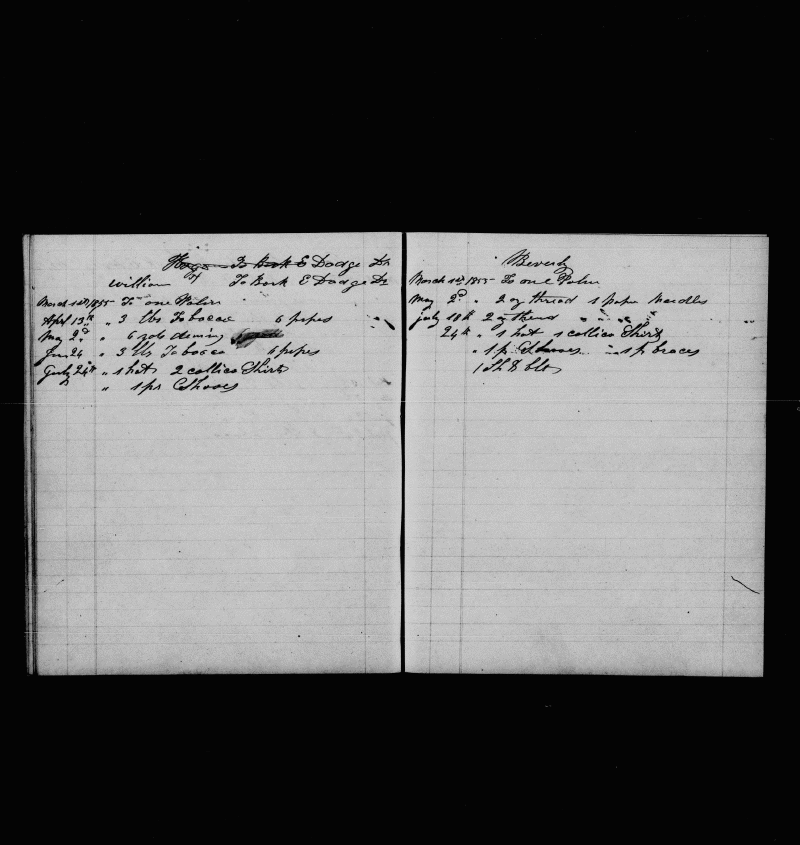 To Bark E Dodge Dr
William To Bark E Dodge Dr
March 1st 1855 To one Palm
April 13th " 3 lbs Tobacco 6 pipes
May 2d " 6 yds deming
Jun 24 " 3 lbs Tobacco 6 pipes
July 24th " 1 hat 2 callico Shirts
" 1 pr Shoes
Beverly
March 1st 1855 To one Palm
May 2d " 2 oz thread 1 paper Needles
July 10th 2 oz thread " "
24th " 1 hat 1 callico Shirt
" 1 pr Shoes 1 pr braces